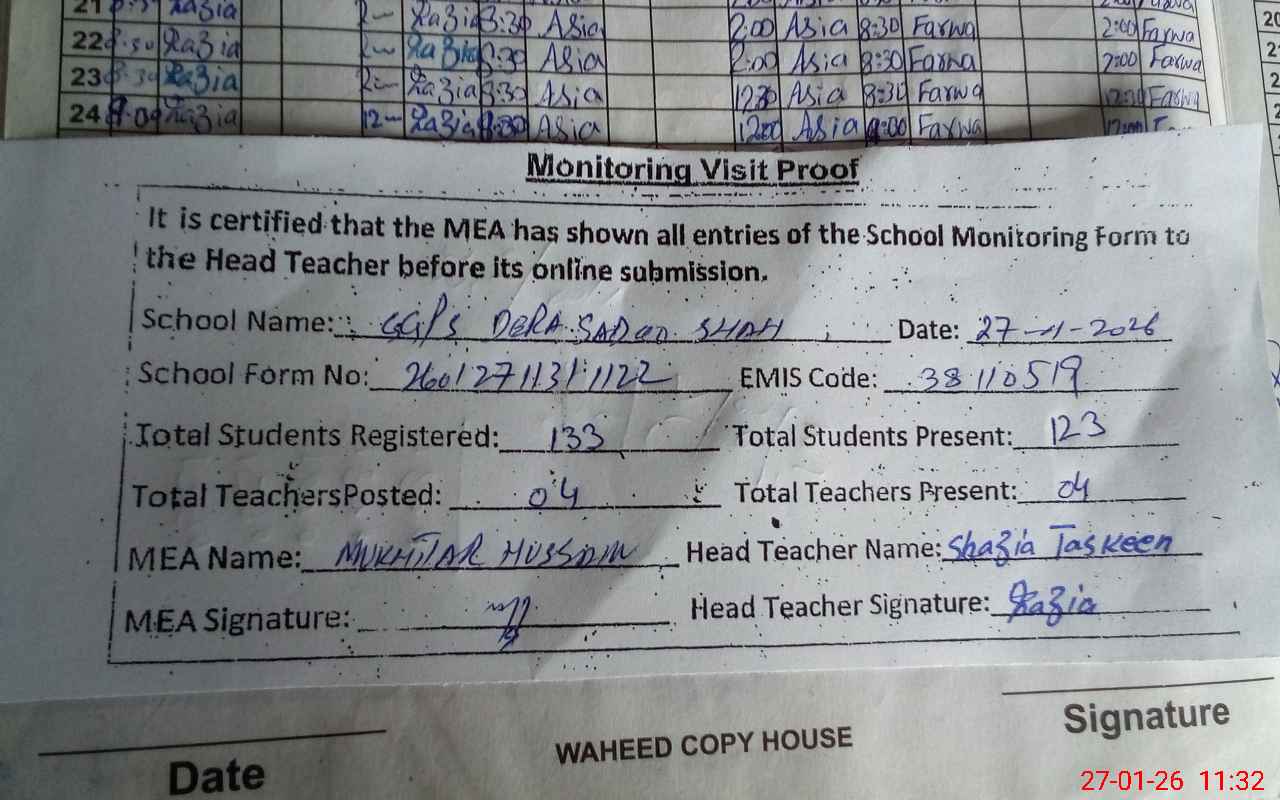 21 Razia Razia 3:30 Asia 2:00 Asia 8:30 Farwa 2:00 Farwa
22 8:30 Razia 2— Razia 8:30 Asia 2:00 Asia 8:30 Farwa 2:00 Farwa
23 8:30 Razia 2— Razia 8:30 Asia 1230 Asia 8:30 Farwa 12:30 Farwa
24 9:00 Razia 12— Razia 8:30 Asia 1200 Asia 9:00 Farwa 12:00
Monitoring Visit Proof
It is certified that the MEA has shown all entries of the School Monitoring Form to
the Head Teacher before its online submission.
School Name: GGPS DERA SADAD SHAH Date: 27-1-2026
School Form No: 260127113131122 EMIS Code: 38110519
Total Students Registered: 133 Total Students Present: 123
Total TeachersPosted: 04 Total Teachers Present: 04
MEA Name: MUKHTAR HUSSAIN Head Teacher Name: Shazia Taskeen
MEA Signature: Head Teacher Signature: Razia
Signature
WAHEED COPY HOUSE
Date
27-01-26 11:32